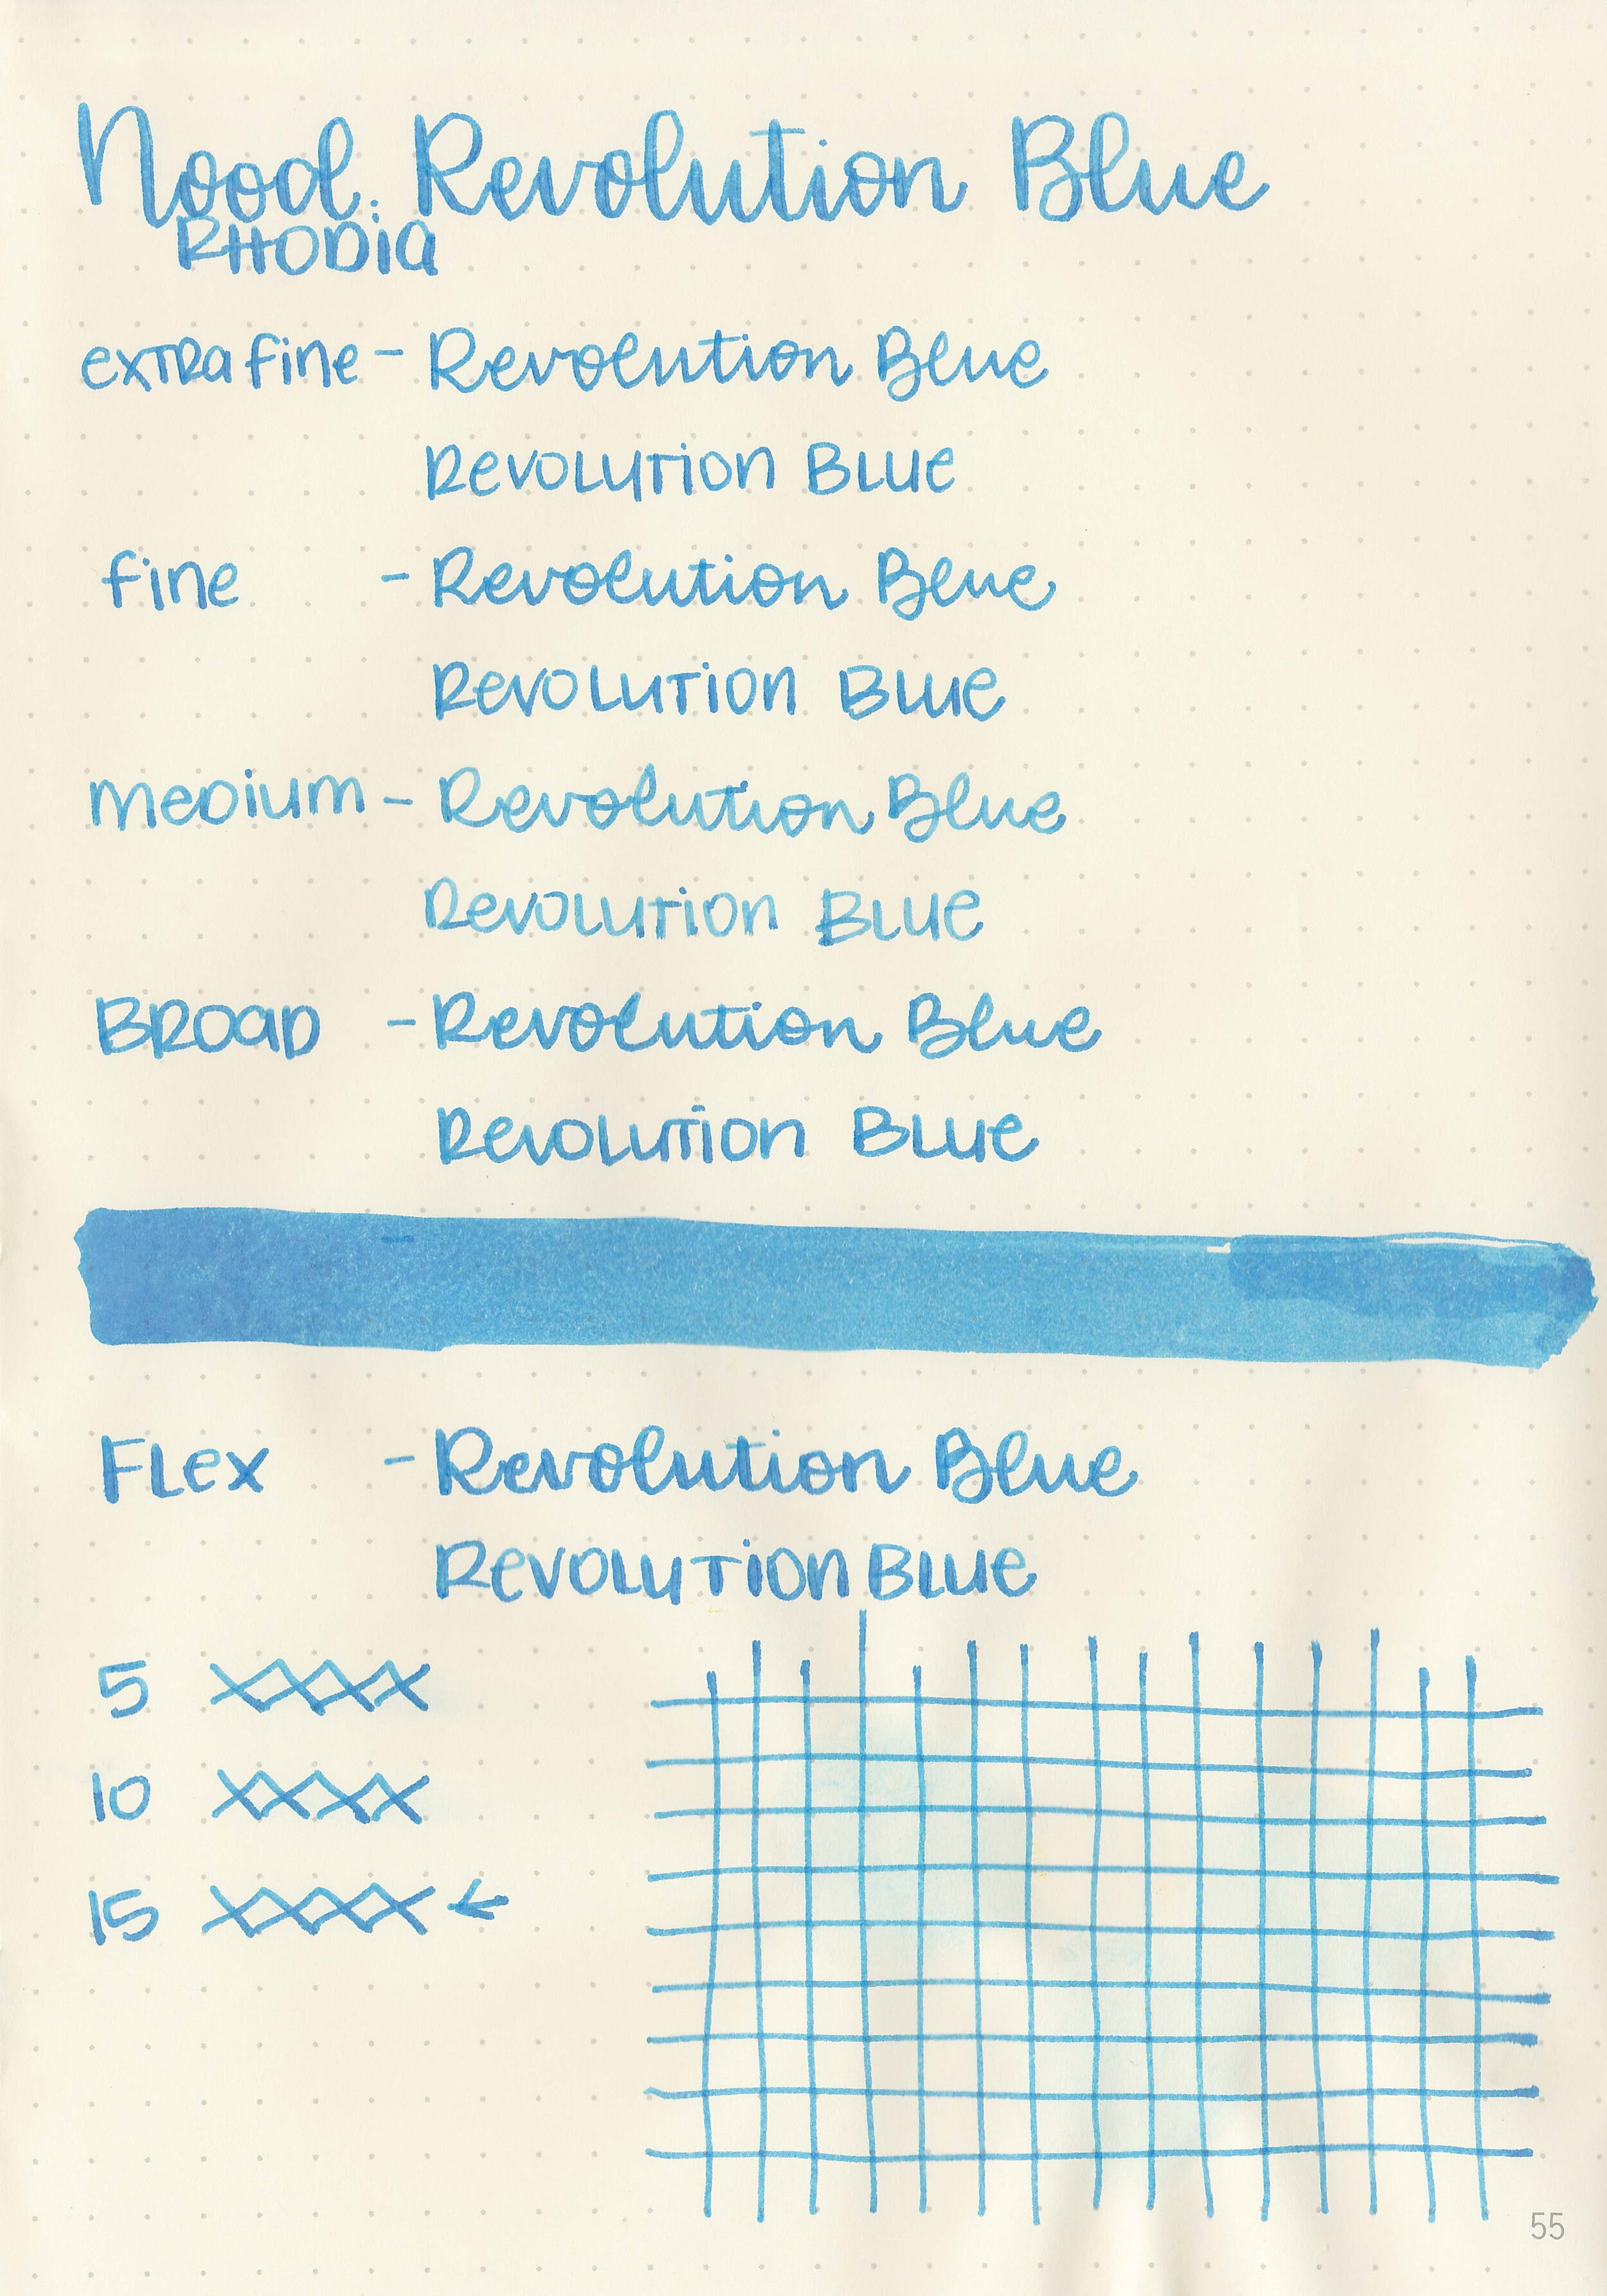 Nood. Revolution Blue
RHODIA
extra fine - Revolution Blue
Revolution Blue
fine - Revolution Blue
Revolution Blue
medium - Revolution Blue
Revolution Blue
BROAD - Revolution Blue
Revolution Blue
FLex - Revolution Blue
Revolution Blue
5 XXXX
10 XXXX
15 XXXX ←
55